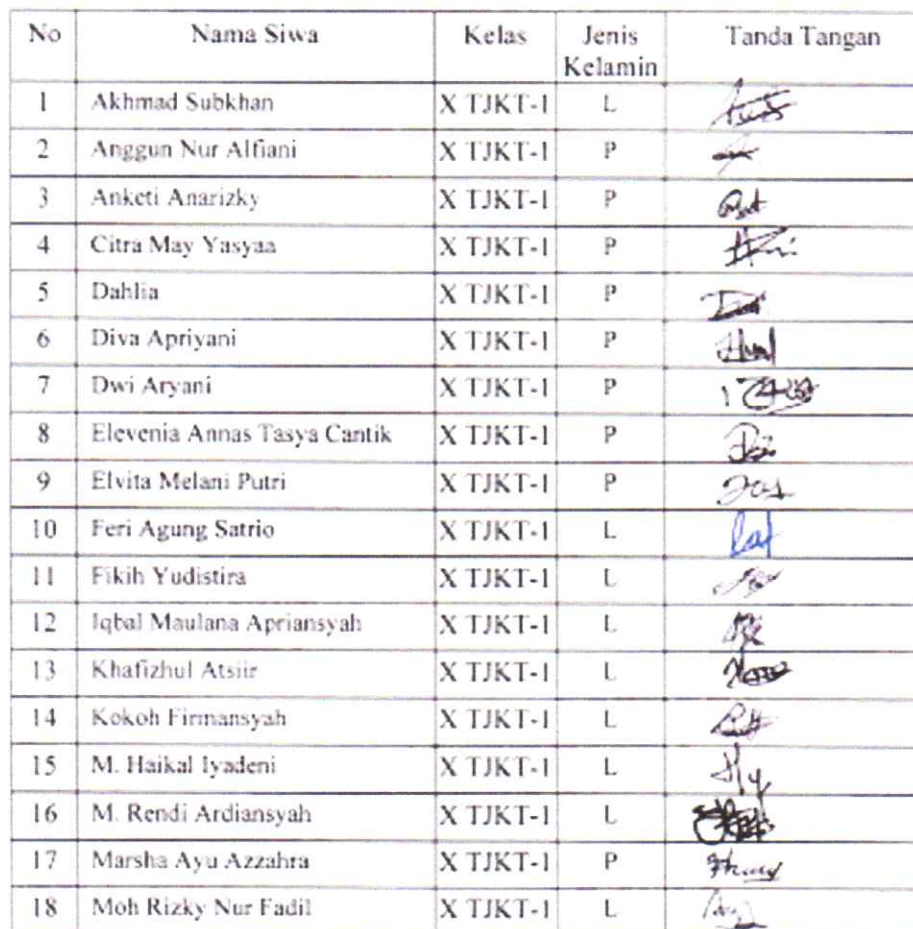 No Nama Siwa Kelas Jenis Kelamin Tanda Tangan
1 Akhmad Subkhan X TJKT-1 L
2 Anggun Nur Alfiani X TJKT-1 P
3 Anketi Anarizky X TJKT-1 P
4 Citra May Yasyaa X TJKT-1 P
5 Dahlia X TJKT-1 P
6 Diva Apriyani X TJKT-1 P
7 Dwi Aryani X TJKT-1 P
8 Elevenia Annas Tasya Cantik X TJKT-1 P
9 Elvita Melani Putri X TJKT-1 P
10 Feri Agung Satrio X TJKT-1 L
11 Fikih Yudistira X TJKT-1 L
12 Iqbal Maulana Apriansyah X TJKT-1 L
13 Khafizhul Atsiir X TJKT-1 L
14 Kokoh Firmansyah X TJKT-1 L
15 M. Haikal Iyadeni X TJKT-1 L
16 M. Rendi Ardiansyah X TJKT-1 L
17 Marsha Ayu Azzahra X TJKT-1 P
18 Moh Rizky Nur Fadil X TJKT-1 L